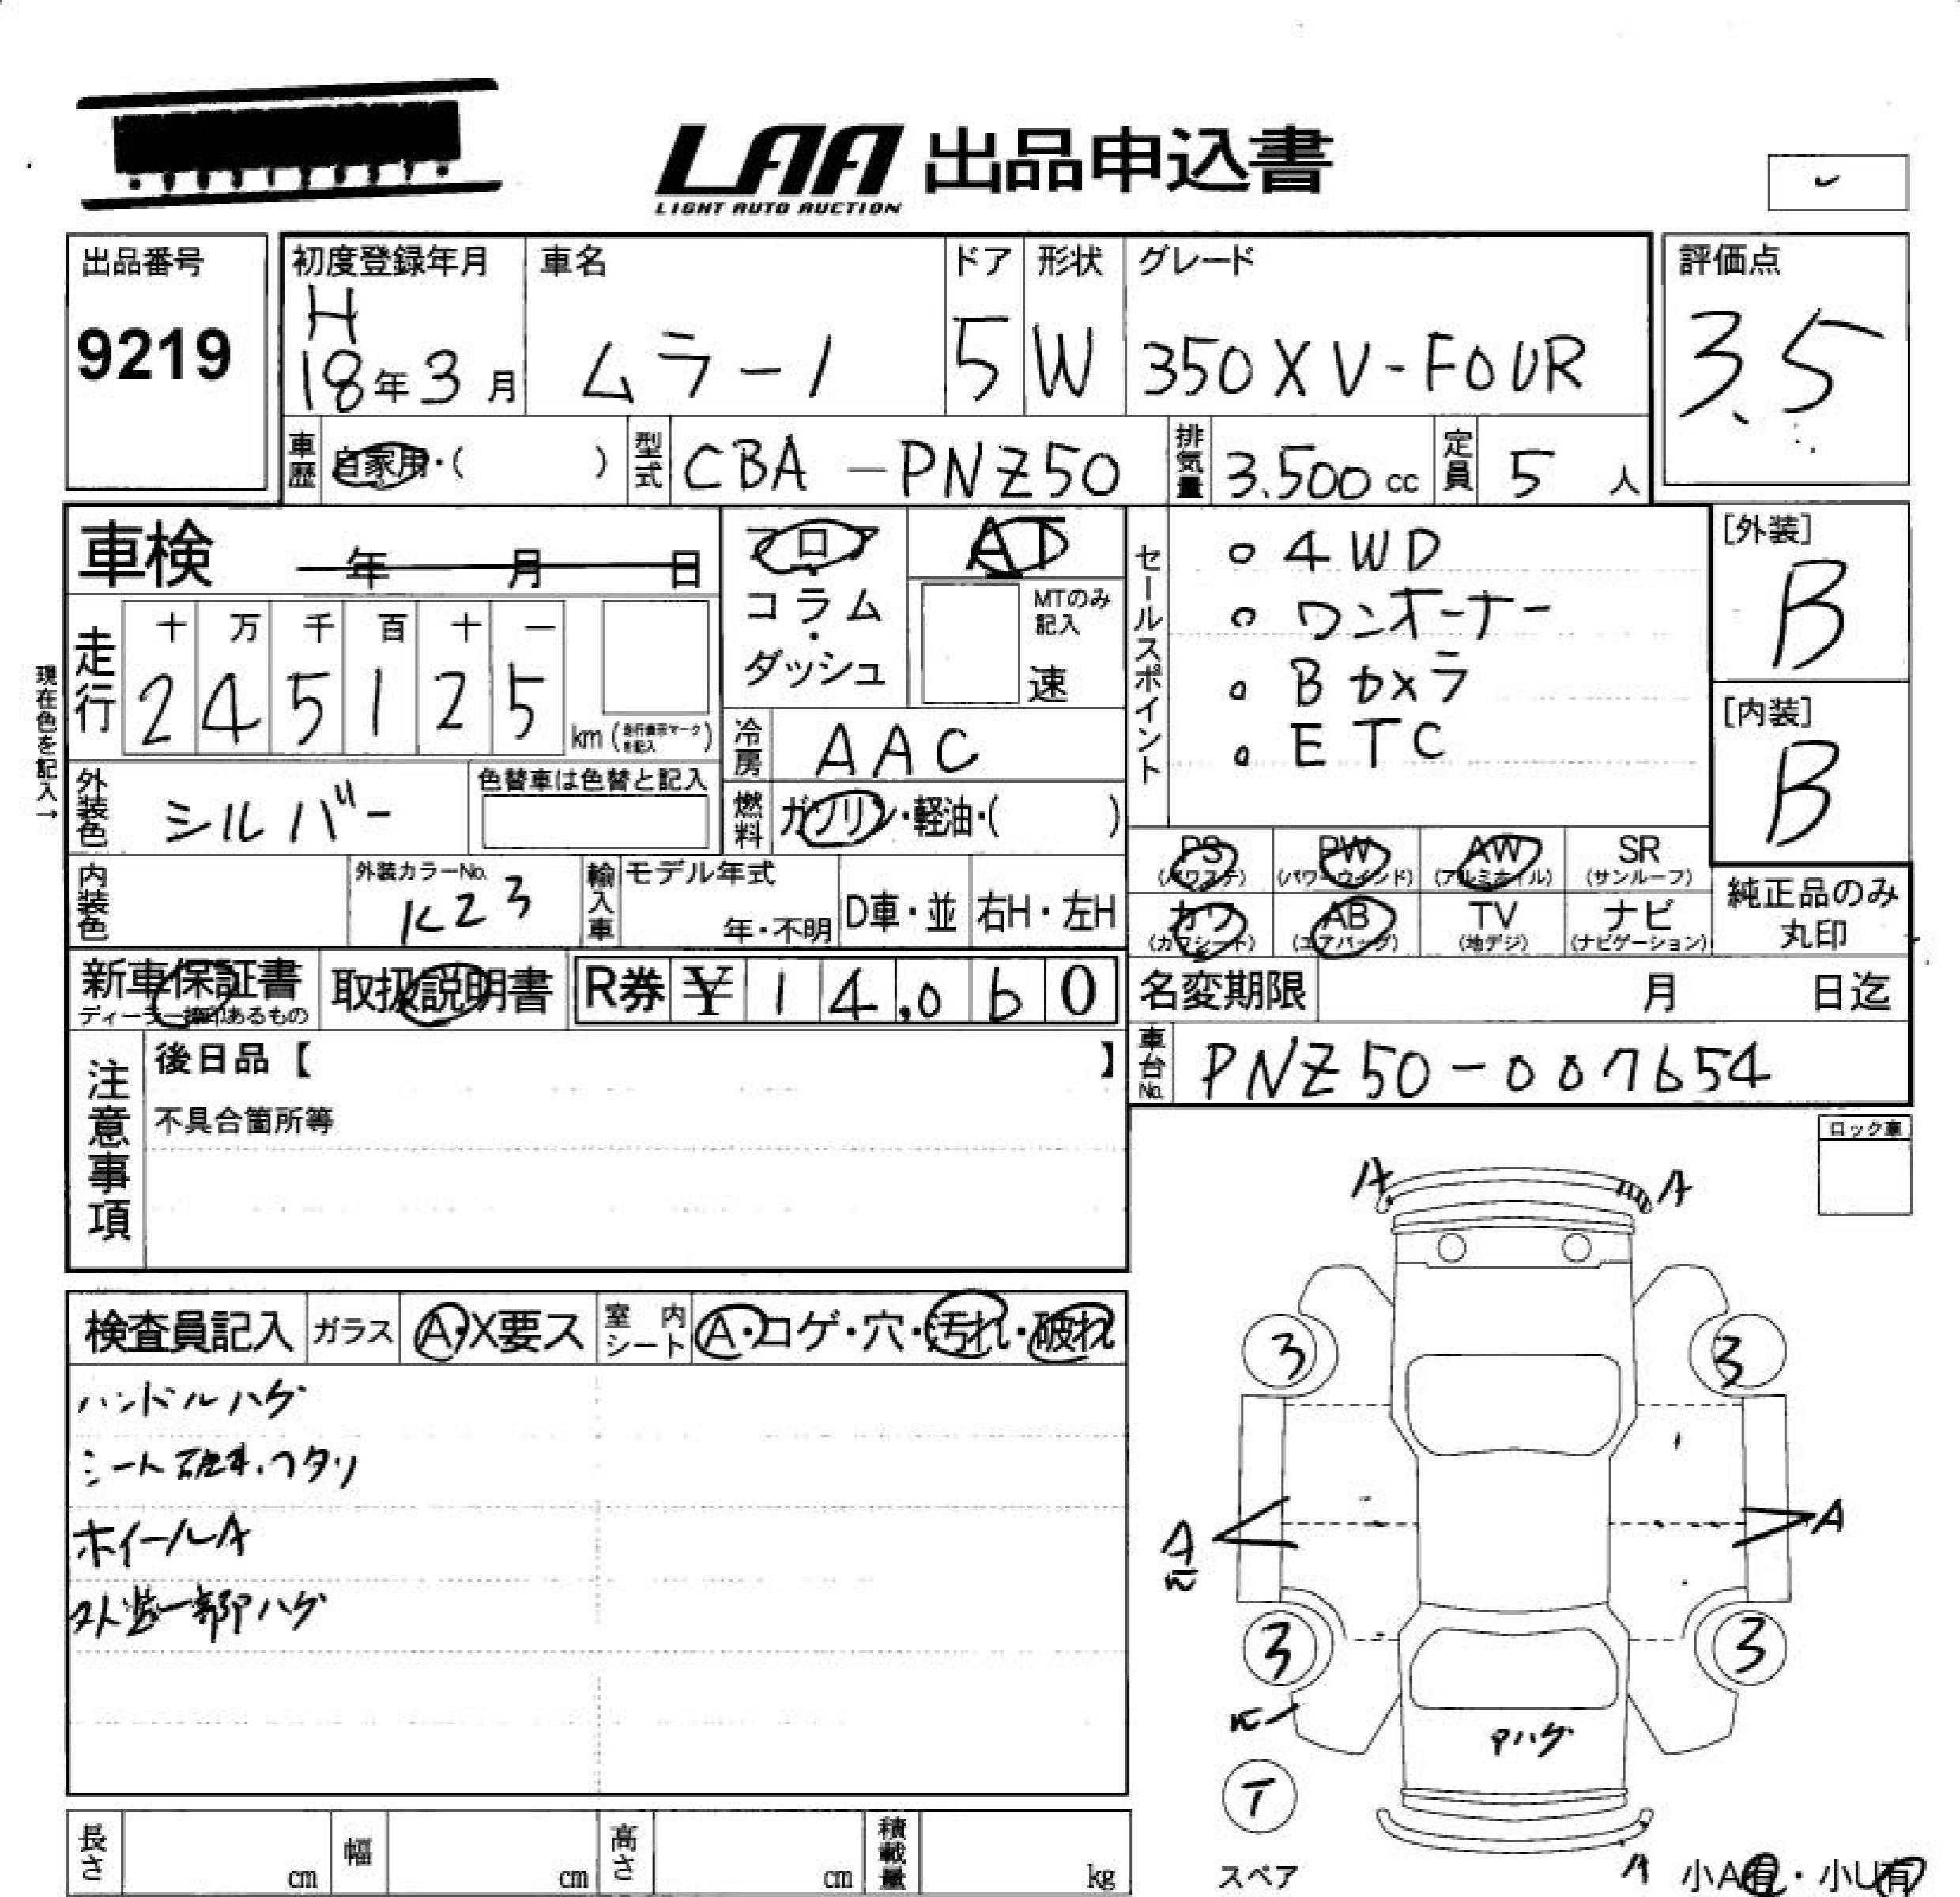 LAA 出品申込書
LIGHT AUTO AUCTION
出品番号
9219
初度登録年月
H
18年3月
車名
ムラーノ
ドア
5
形状
W
グレード
350XV-FOUR
評価点
3.5
車歴 自家用・( )
型式 CBA-PNZ50
排気量 3.500 cc
定員 5 人
車検 年 月 日
フロア
コラム
・
ダッシュ
AT
MTのみ
記入
速
セールスポイント
○ 4WD
○ ワンオーナー
○ Bカメラ
○ ETC
[外装]
B
[内装]
B
現在色を記入→
走行
十 万 千 百 十 一
2 4 5 1 2 5
km (走行表示マークを記入)
冷房 AAC
外装色 シルバー
色替車は色替と記入
燃料 ガソリン・軽油・( )
PS PW AW SR
(パワステ) (パワーウインド) (アルミホイル) (サンルーフ)
カワ AB TV ナビ
(カワシート) (エアバッグ) (地デジ) (ナビゲーション)
純正品のみ
丸印
内装色
外装カラーNo.
K23
輸入車
モデル年式
年・不明
D車・並
右H・左H
新車保証書
ディーラー捺印あるもの
取扱説明書
R券 ¥ 1 4,0 6 0
名変期限 月 日迄
車台No. PNZ50-007654
注意事項
後日品【 】
不具合箇所等
ロック車
検査員記入 ガラス A・X要ス 室内シート A・コゲ・穴・汚れ・破れ
ハンドルハゲ
シート破れ・ヘタリ
ホイールA
内装一部ハゲ
A A
3 3
A A
3 3
ハゲ
T
スペア
A
小A有・小U有
長さ cm 幅 cm 高さ cm 積載量 kg